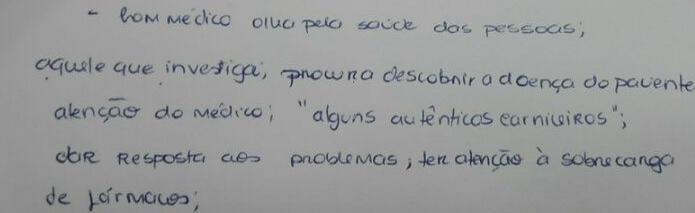 - bom médico olha pela saúde das pessoas;
aquele que investiga; procura descobrir a doença do paciente
atenção do médico; "alguns autênticos carniceiros";
dar Resposta aos problemas; ter atenção à sobrecarga
de fármacos;